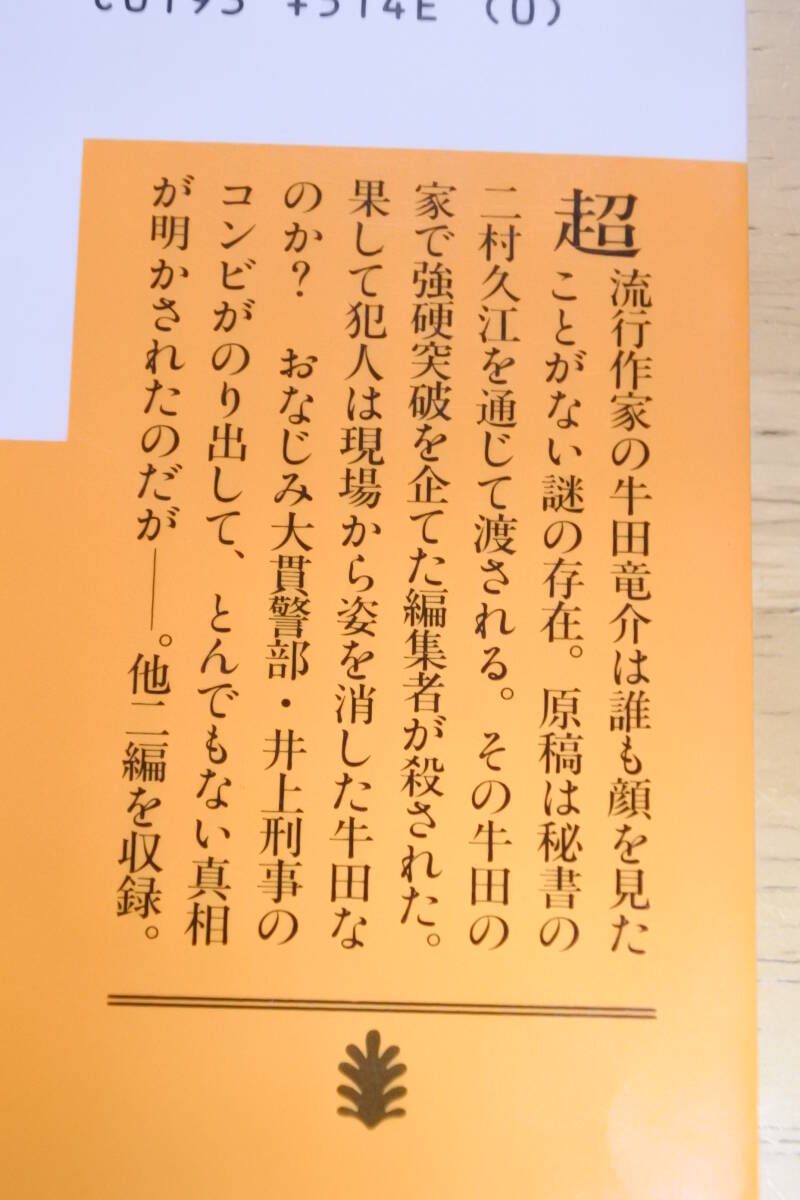 C0193 ¥514E (0)
超流行作家の牛田竜介は誰も顔を見た
ことがない謎の存在。原稿は秘書の
二村久江を通じて渡される。その牛田の
家で強硬突破を企てた編集者が殺された。
果して犯人は現場から姿を消した牛田な
のか？　おなじみ大貫警部・井上刑事の
コンビがのり出して、とんでもない真相
が明かされたのだが――。他二編を収録。